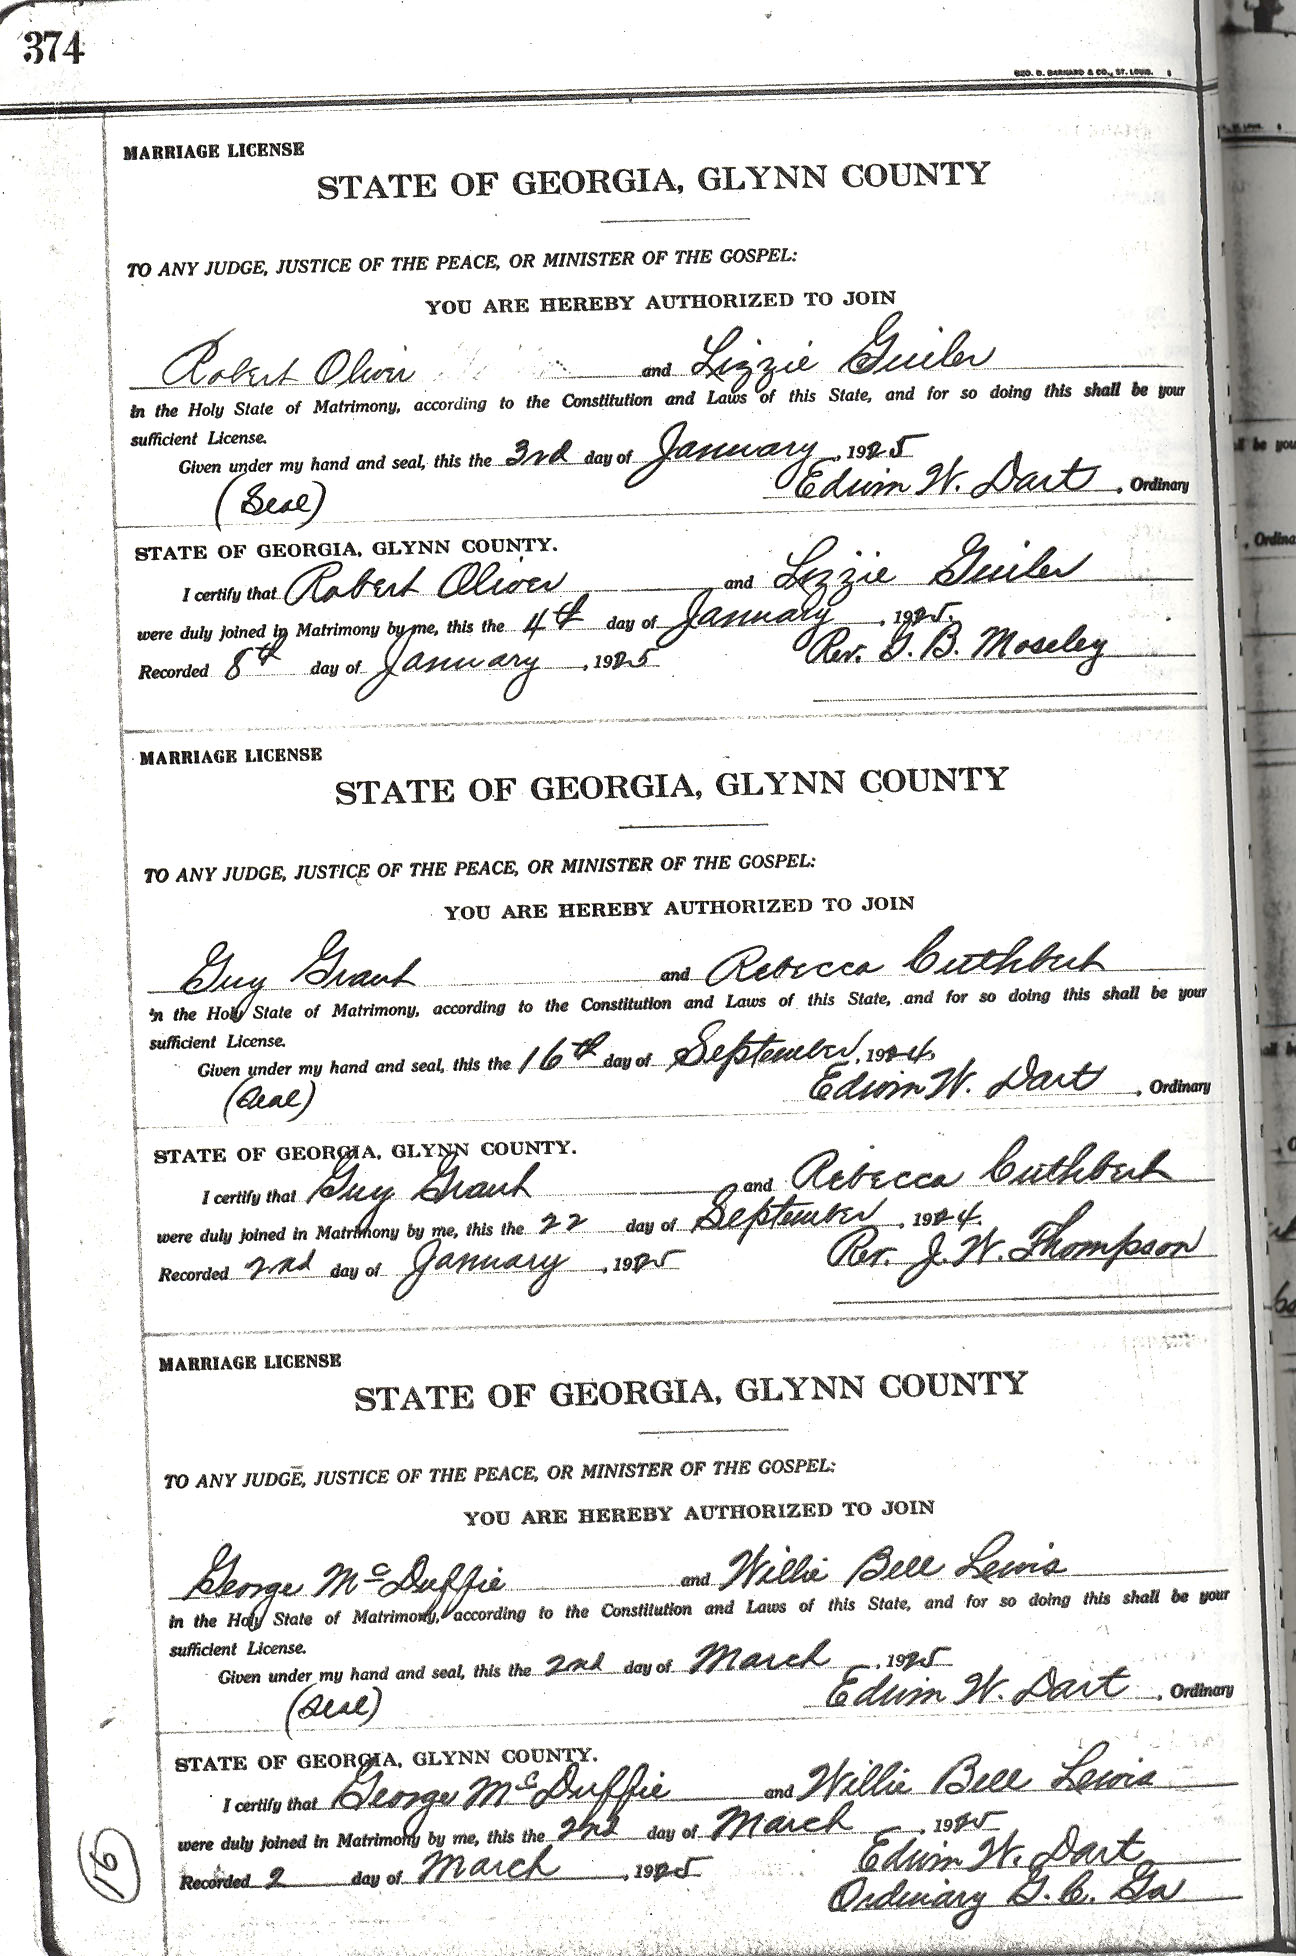 374
GEO. D. BARNARD & CO., ST. LOUIS.
MARRIAGE LICENSE
STATE OF GEORGIA, GLYNN COUNTY
TO ANY JUDGE, JUSTICE OF THE PEACE, OR MINISTER OF THE GOSPEL:
YOU ARE HEREBY AUTHORIZED TO JOIN
Robert Oliver and Lizzie Guiler
in the Holy State of Matrimony, according to the Constitution and Laws of this State, and for so doing this shall be your
sufficient License.
Given under my hand and seal, this the 3rd day of January, 1925
(Seal) Edwin W. Dart, Ordinary
STATE OF GEORGIA, GLYNN COUNTY.
I certify that Robert Oliver and Lizzie Guiler
were duly joined in Matrimony by me, this the 4th day of January, 1925.
Recorded 8th day of January, 1925 Rev. G. B. Moseley
MARRIAGE LICENSE
STATE OF GEORGIA, GLYNN COUNTY
TO ANY JUDGE, JUSTICE OF THE PEACE, OR MINISTER OF THE GOSPEL:
YOU ARE HEREBY AUTHORIZED TO JOIN
Guy Grant and Rebecca Cuthbert
in the Holy State of Matrimony, according to the Constitution and Laws of this State, and for so doing this shall be your
sufficient License.
Given under my hand and seal, this the 16th day of September, 1924.
(Seal) Edwin W. Dart, Ordinary
STATE OF GEORGIA, GLYNN COUNTY.
I certify that Guy Grant and Rebecca Cuthbert
were duly joined in Matrimony by me, this the 22 day of September, 1924.
Recorded 2nd day of January, 1925 Rev. J. W. Thompson
MARRIAGE LICENSE
STATE OF GEORGIA, GLYNN COUNTY
TO ANY JUDGE, JUSTICE OF THE PEACE, OR MINISTER OF THE GOSPEL:
YOU ARE HEREBY AUTHORIZED TO JOIN
George McDuffie and Willie Bell Lewis
in the Holy State of Matrimony, according to the Constitution and Laws of this State, and for so doing this shall be your
sufficient License.
Given under my hand and seal, this the 2nd day of March, 1925
(Seal) Edwin W. Dart, Ordinary
STATE OF GEORGIA, GLYNN COUNTY.
I certify that George McDuffie and Willie Bell Lewis
were duly joined in Matrimony by me, this the 2nd day of March, 1925
Recorded 2 day of March, 1925 Edwin W. Dart
Ordinary G. C. Ga
16